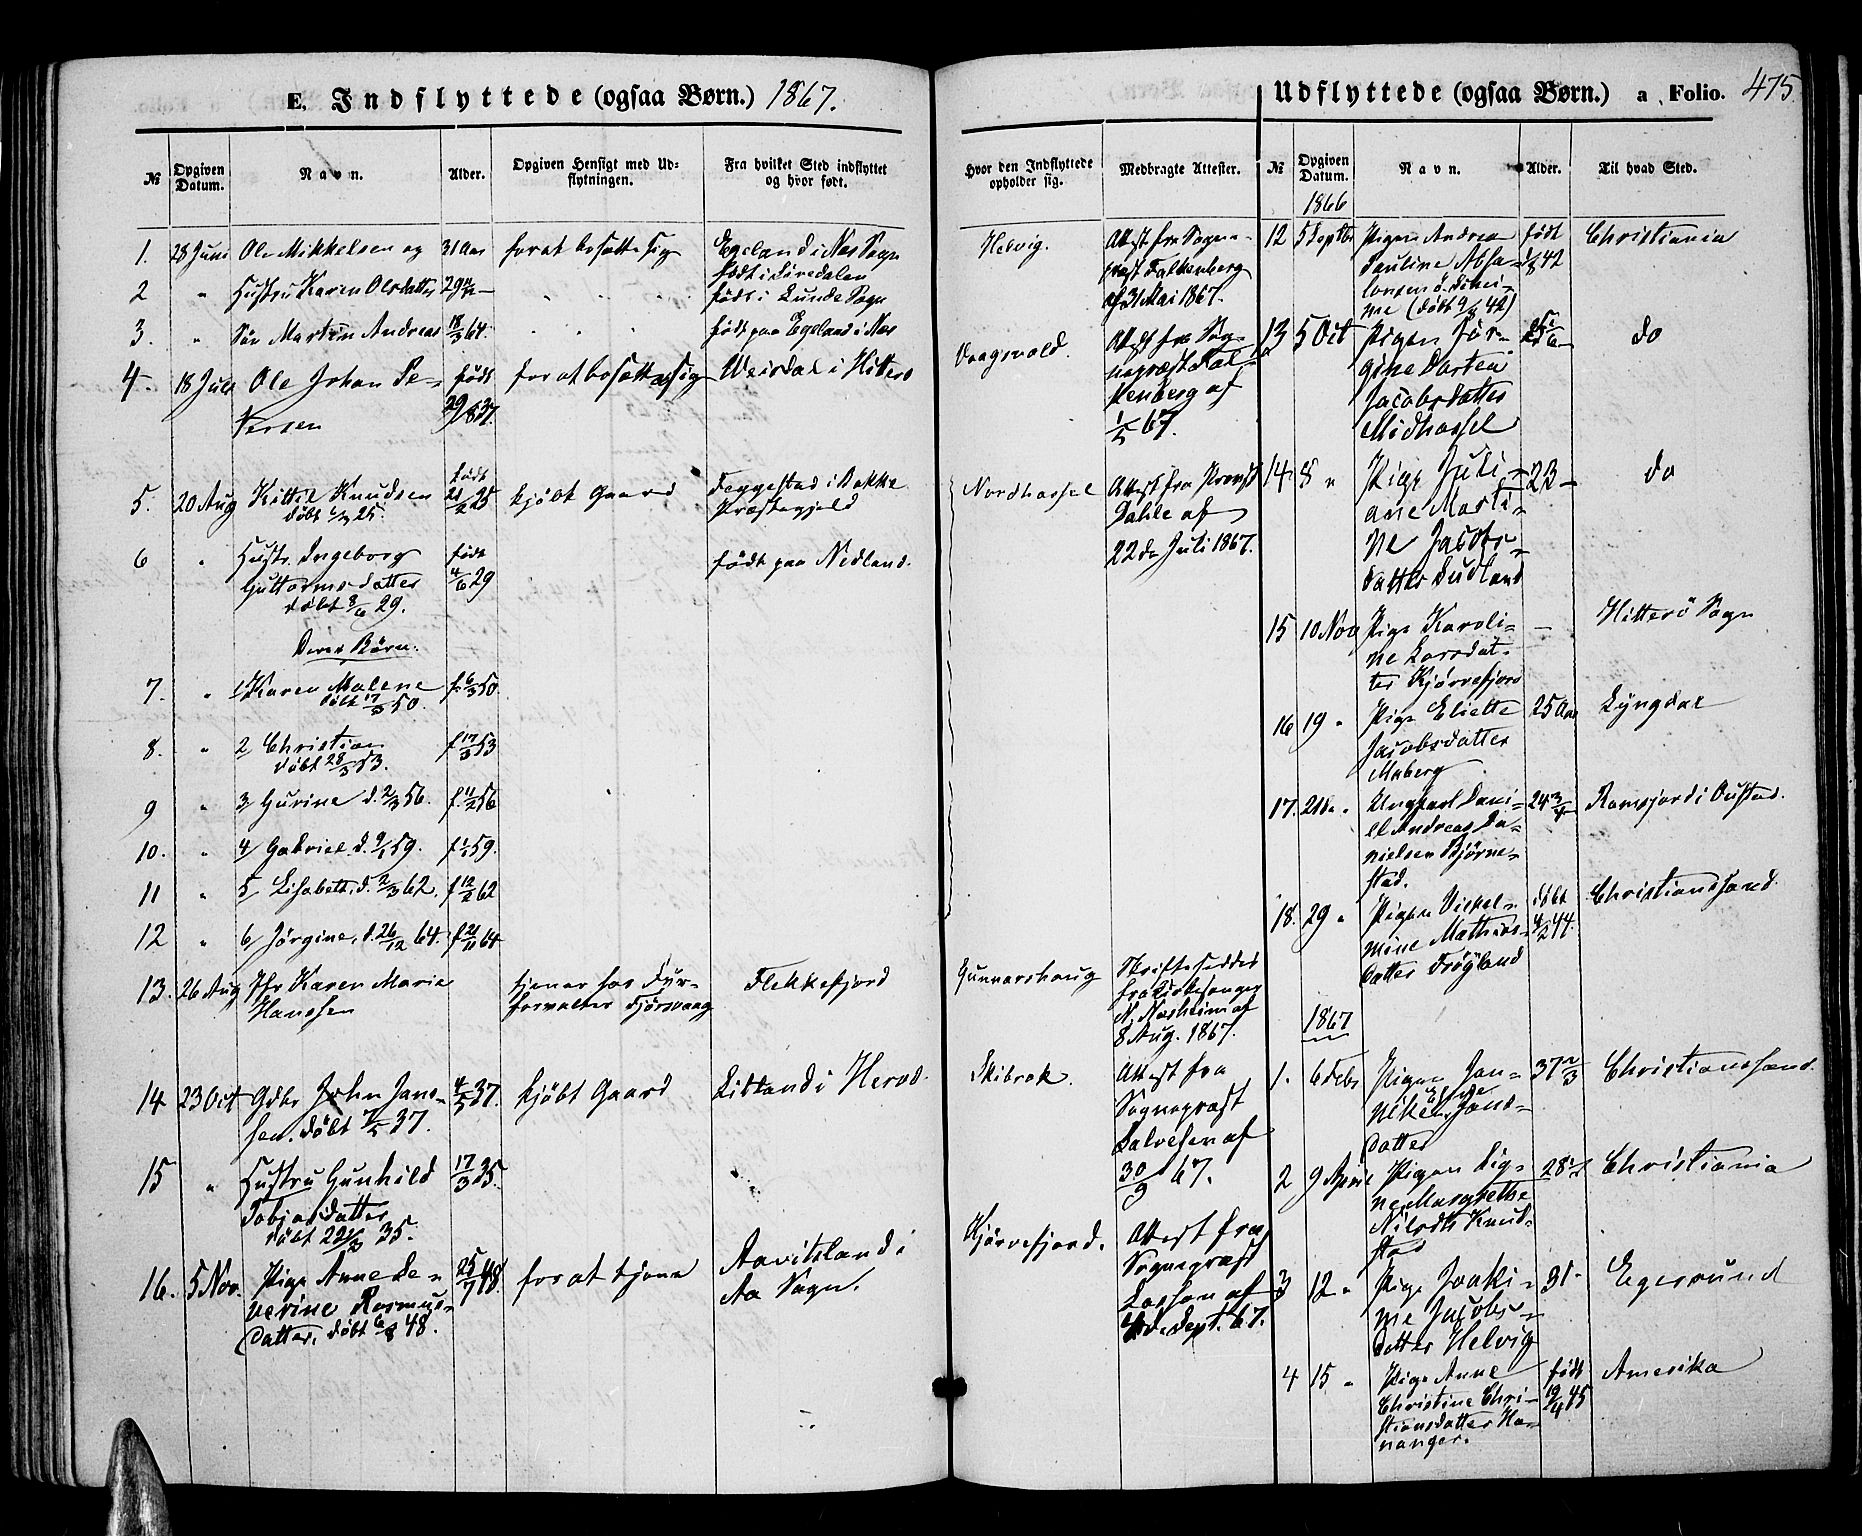 E. Indflyttede (ogsaa Børn.) 1867.
№ Opgiven Datum. Navn. Alder. Opgiven Hensigt med Udflytningen. Fra hvilket Sted indflyttet og hvor født.
Hvor den Indflyttede opholder sig. Medbragte Attester.
1. 28 Juni Ole Mikkelsen og 31 Aar for at bosætte sig Egeland i Næs Sogn
født i Siredalen
Helvig. Attest fra Sogne-
præst Falkenberg
af 31 Mai 1867.
2 " Hustru Karen Olsdatter 29 " " " født i Lunde Sogn
3. " Søn Martin Andreas 18/3 64. " " " født paa Egeland i Næs
4. 18 Juli Ole Johan Pe-
tersen
født
29/8 37.
for at bosætte sig Veisdal i Hitterö
Vaagsvold. Attest fra Sog-
nepræst Fal-
kenberg af
1/5 67.
5. 20 Aug Kittil Knudsen
døbt 25.
født
25
kjöbt Gaard Feggestad i Bakke
Præstegjeld
Nordhassel Attest fra Provst
Dahle af
22de Juli 1867.
6 " Hustr. Ingeborg
Guttormsdatter
døbt 8/6 29.
født
4/6 29
født paa Nedland.
Deres Börn.
7. " 1/ Karen Malene
døbt 17/3 50.
f. 6/3 50.
8. " 2 Christian
døbt 28/3 53.
f. 17/3 53
9 " 3/ Gurine d. 2/3 56. f. 11/2 56
10. " 4/ Gabriel. d. 9/1 59. f. 1/1 59.
11 " 5/ Lisabeth, d. 2/3 62. f. 12/2 62
12 " 6/ Jörgine, d. 26/12 64. f. 21/11 64
13. 26 Aug Jfr Karen Marie
Hanssen
tjener hos Fyr-
forvalter Fjörsvaag
Flekkefjord
Gunnarshaug Skriftseddel
fra Kirkesanger
N. Næsheim af
8 Aug. 1867.
14 23 Oct Gdbr John Jans-
sen. døbt 7/5 37.
4/5 37. kjöbt Gaard Litland i Herod.
Skibrok. Attest fra
Sognepræst
Salvesen af
30/9 67.
15 " Hustru Gunhild
Tobiasdatter
døbt 22/3 35.
17/3 35.
16. 5 Nov. Pige Anne Se-
verine Rasmus-
datter. døbt 6/8 48.
25/7 48. for at tjene Aavitsland i
Aa Sogn.
Kjörrefjord. Attest fra
Sognepræst
Lassen af
4de Sept. 67.
Udflyttede (ogsaa Børn.) a. Folio. 475.
№ Opgiven Datum. Navn. Alder. Til hvad Sted.
1866
12 5 Septbr Pigen Andrea
Pauline Absa-
lonsen
(døbt 9/8 42)
født
1/8 42
Christiania
13 5 Oct Pigen Jör-
gine Dortea
Jacobsdatter
Midhassel
do
14 8 " Pige Juli-
ane Marti-
ne Jacobs-
datter Sudland
23 - do
15 10 Nov Pige Karoli-
ne Larsdat-
ter Kjörrefjord
- Hitterö Sogn
16 19 " Pige Eliette
Jacobsdatter
Maberg
25 Aar Lyngdal
17. 21de " Ungkarl Dani-
el Andreas Da-
nielsen Björne-
stad.
24 3/4 Ramsfjord i Oustad.
18. 29 " Pigen Vilhel-
mine Mathias-
datter Tröyland
døbt
4/2 44.
Christianssand.
1867
1. 6 Febr Pigen Jan-
niken Jans-
datter
37 2/3 Christianssand.
2 9 April Pigen Sig-
ne Margrethe
Nilsdtr Knud-
stad
28 1/2 Christiania
3 12 " Pige Joaki-
me Jacobs-
datter Helvig
31 - Egersund
4 15 " Pige Anne
Christine Chri-
stiansdatter Ha-
nanger.
født
19/4 45
Amerika